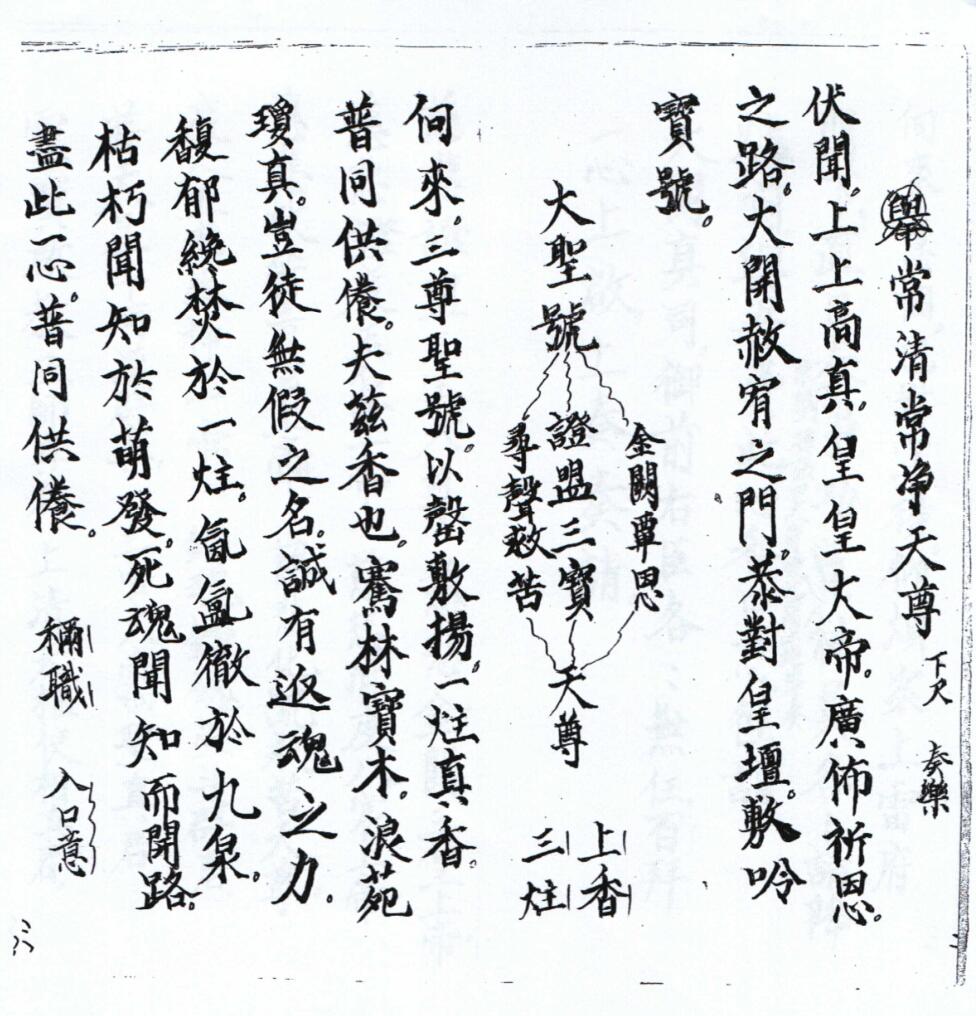 舉常清常净天尊 下尺 奏樂
伏聞。上上高真。皇皇大帝。廣佈祈恩。
之路。大開赦宥之門。恭對皇壇。敷吟
寶號。
大聖號
金闕覃恩
證盟三寶
尋聲救苦
天尊
上香
三炷
向來。三尊聖號。以罄敷揚。一炷真香。
普同供養。夫茲香也。騫林寶木。浪苑
瓊真。豈徒無假之名。誠有返魂之力。
馥郁纔焚於一炷。氤氳徹於九泉。
枯朽聞知於萌發。死魂聞知而開路。
盡此一心。普同供養。 稱職 入口意